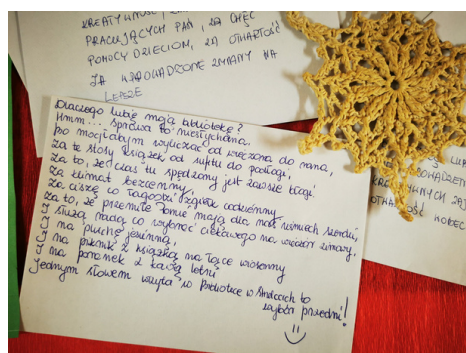 KREATYWNOŚĆ,
PRACUJĄCYCH PAŃ, ZA CHĘĆ
POMOCY DZIECIOM, ZA OTWARTOŚĆ
ZA WPROWADZONE ZMIANY NA
LEPSZE
Dlaczego lubię moją bibliotekę?
Hmm... sprawa to niesłychana
bo mogłabym wyliczać od wieczora do rana,
za te stosy książek od sufitu do podłogi,
za to, że czas tu spędzony jest zawsze błogi
za klimat bezcenny,
za ciszę co łagodzi zgiełk codzienny,
za to, że przemiłe Panie mają dla nas uśmiech szeroki,
i służą radą co wybrać ciekawego na wieczór zimowy,
na pluchę jesienną,
na piknik z książką na łące wiosenny
na poranek z kawą letni
jednym słowem wizyta w Bibliotece w to
przedni!
KREATYWNYCH ZAJ
OTWARTOŚĆ KOBIEC